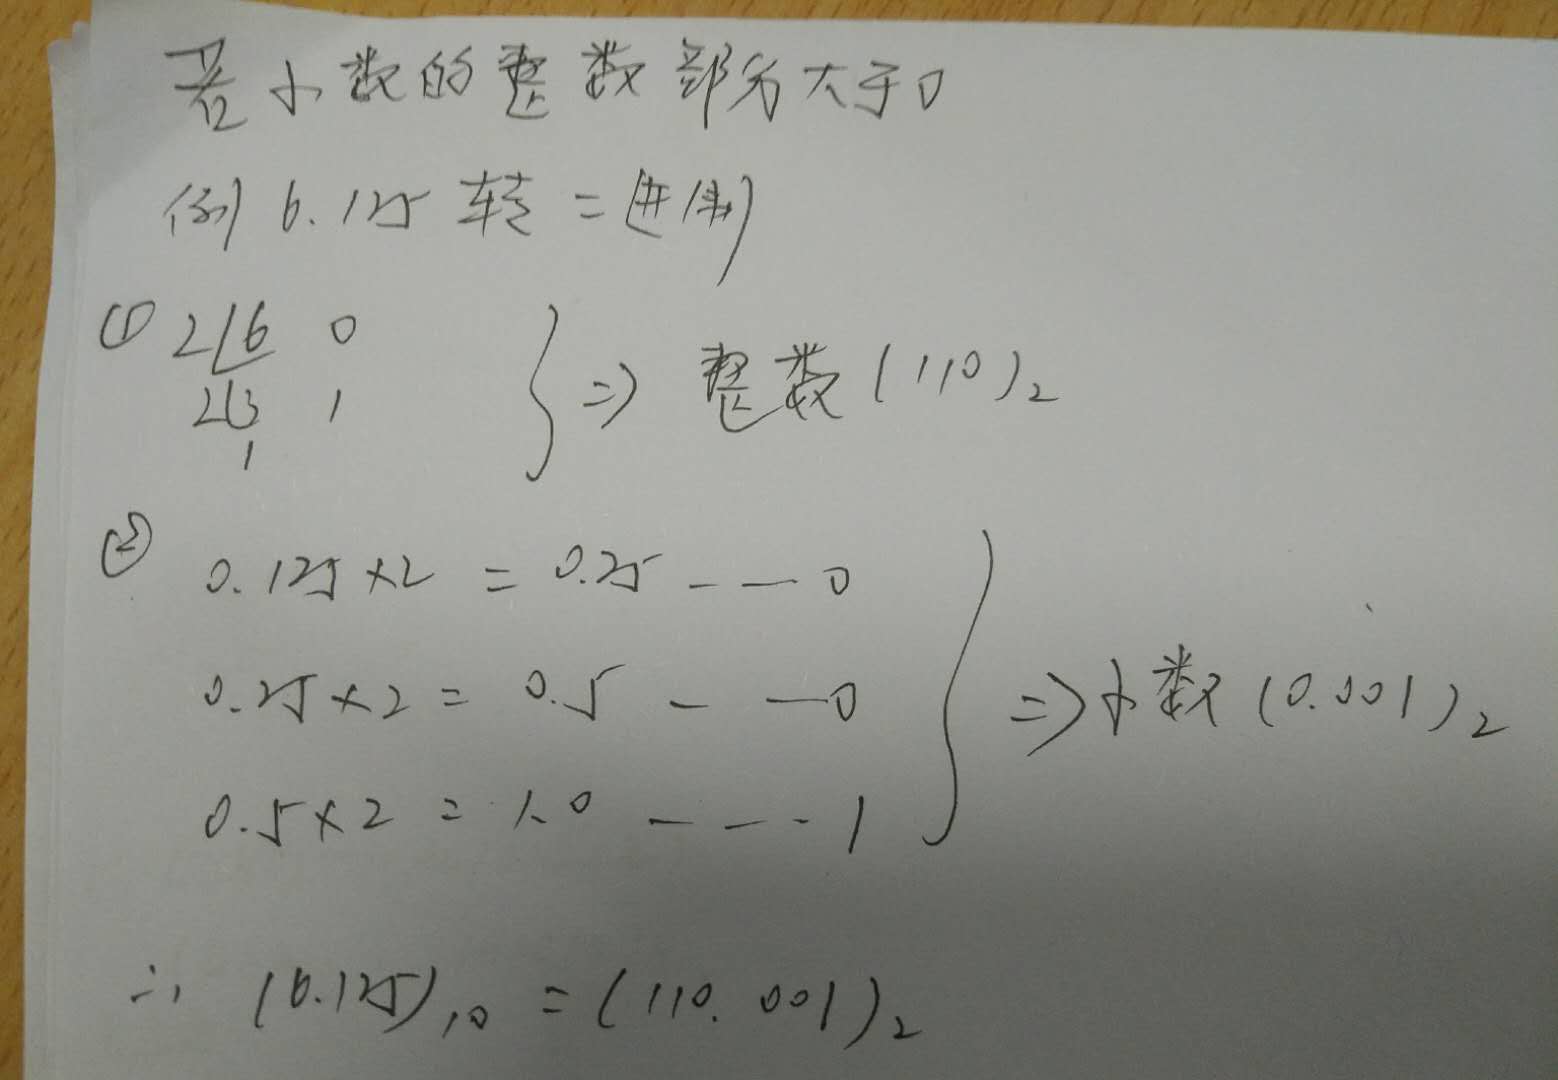 若小数的整数部分大于0
例 6.125 转二进制
① 2 6 0
2 3 1
1
} => 整数 (110)₂
② 0.125 × 2 = 0.25 - — 0
0.25 × 2 = 0.5 - — 0
0.5 × 2 = 1.0 - - - 1
} => 小数 (0.001)₂
∴ (6.125)₁₀ = (110.001)₂